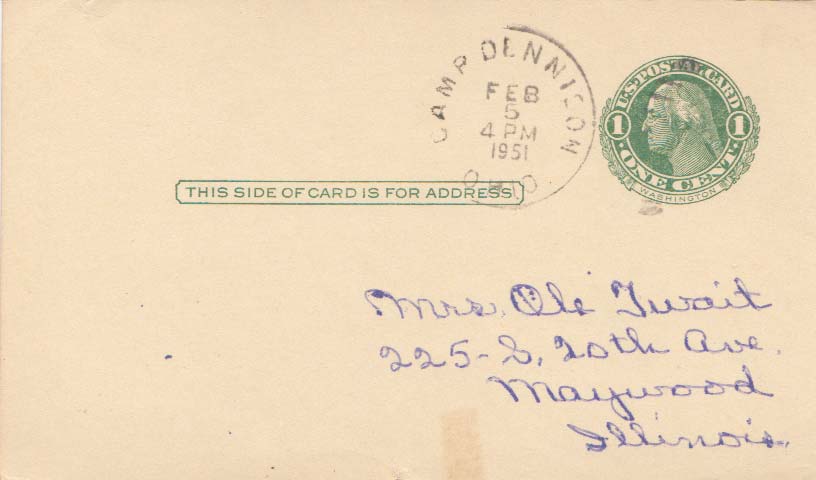 CAMP DENNISON
FEB
5
4 PM
1951
OHIO
U.S. POSTAL CARD
1 1
ONE CENT
WASHINGTON
THIS SIDE OF CARD IS FOR ADDRESS
Mrs. Ole Twait
225-S. 20th Ave.
Maywood
Illinois.